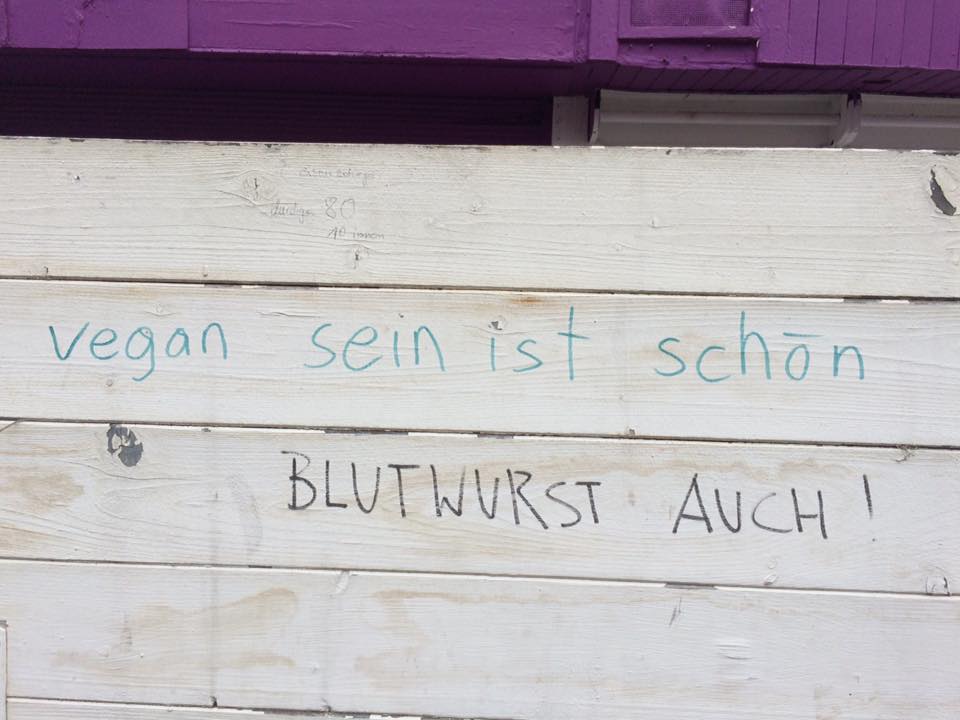 80
vegan sein ist schön
BLUTWURST AUCH!